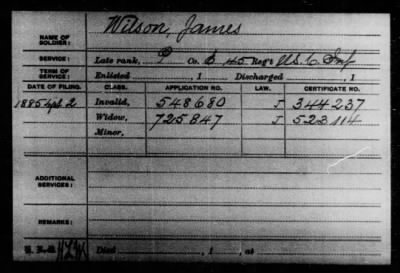 NAME OF SOLDIER: Wilson, James
SERVICE: Late rank, P Co. B 45 Reg't U.S.C. Inf
TERM OF SERVICE: Enlisted , 1 Discharged , 1
DATE OF FILING. CLASS. APPLICATION NO. LAW. CERTIFICATE NO.
1885 Sept. 2 Invalid, 548680 J 344237
Widow, 725847 J 523114
Minor,
ADDITIONAL SERVICES:
REMARKS:
Died , 1 , at